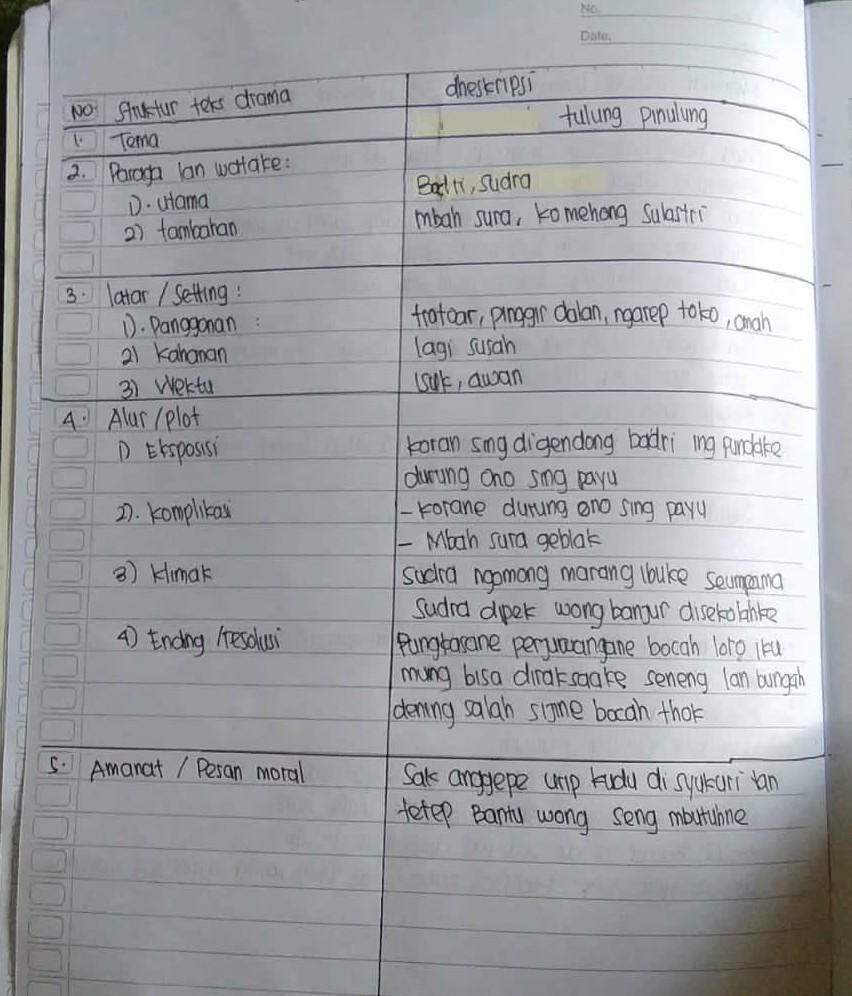 No.
Date.
No. Struktur teks drama dheskripsi
1. Tema tulung pinulung
2. Paraga lan watake:
1). utama Badri, Sudra
2) tambahan mbah sura, ko mehong sulastri
3. latar / Setting :
1). Panggonan : trotoar, pinggir dalan, ngarep toko, omah
2) kahanan lagi susah
3) Wektu isuk, awan
4. Alur / plot
1) Eksposisi koran sing digendong badri ing pundake
durung ono sing payu
2). komplikasi - korane durung ono sing payu
- Mbah sura geblak
3) klimak Sudra ngomong marang ibuke seumpama
Sudra dipek wong banjur disekolahke
4) Ending /resolusi Pungkasane perjuwangane bocah loro iku
mung bisa diraksaake seneng lan bungah
dening salah sijine bocah thok
5. Amanat / Pesan moral Sak anggepe urip kudu di syukuri lan
tetep Bantu wong seng mbutuhne